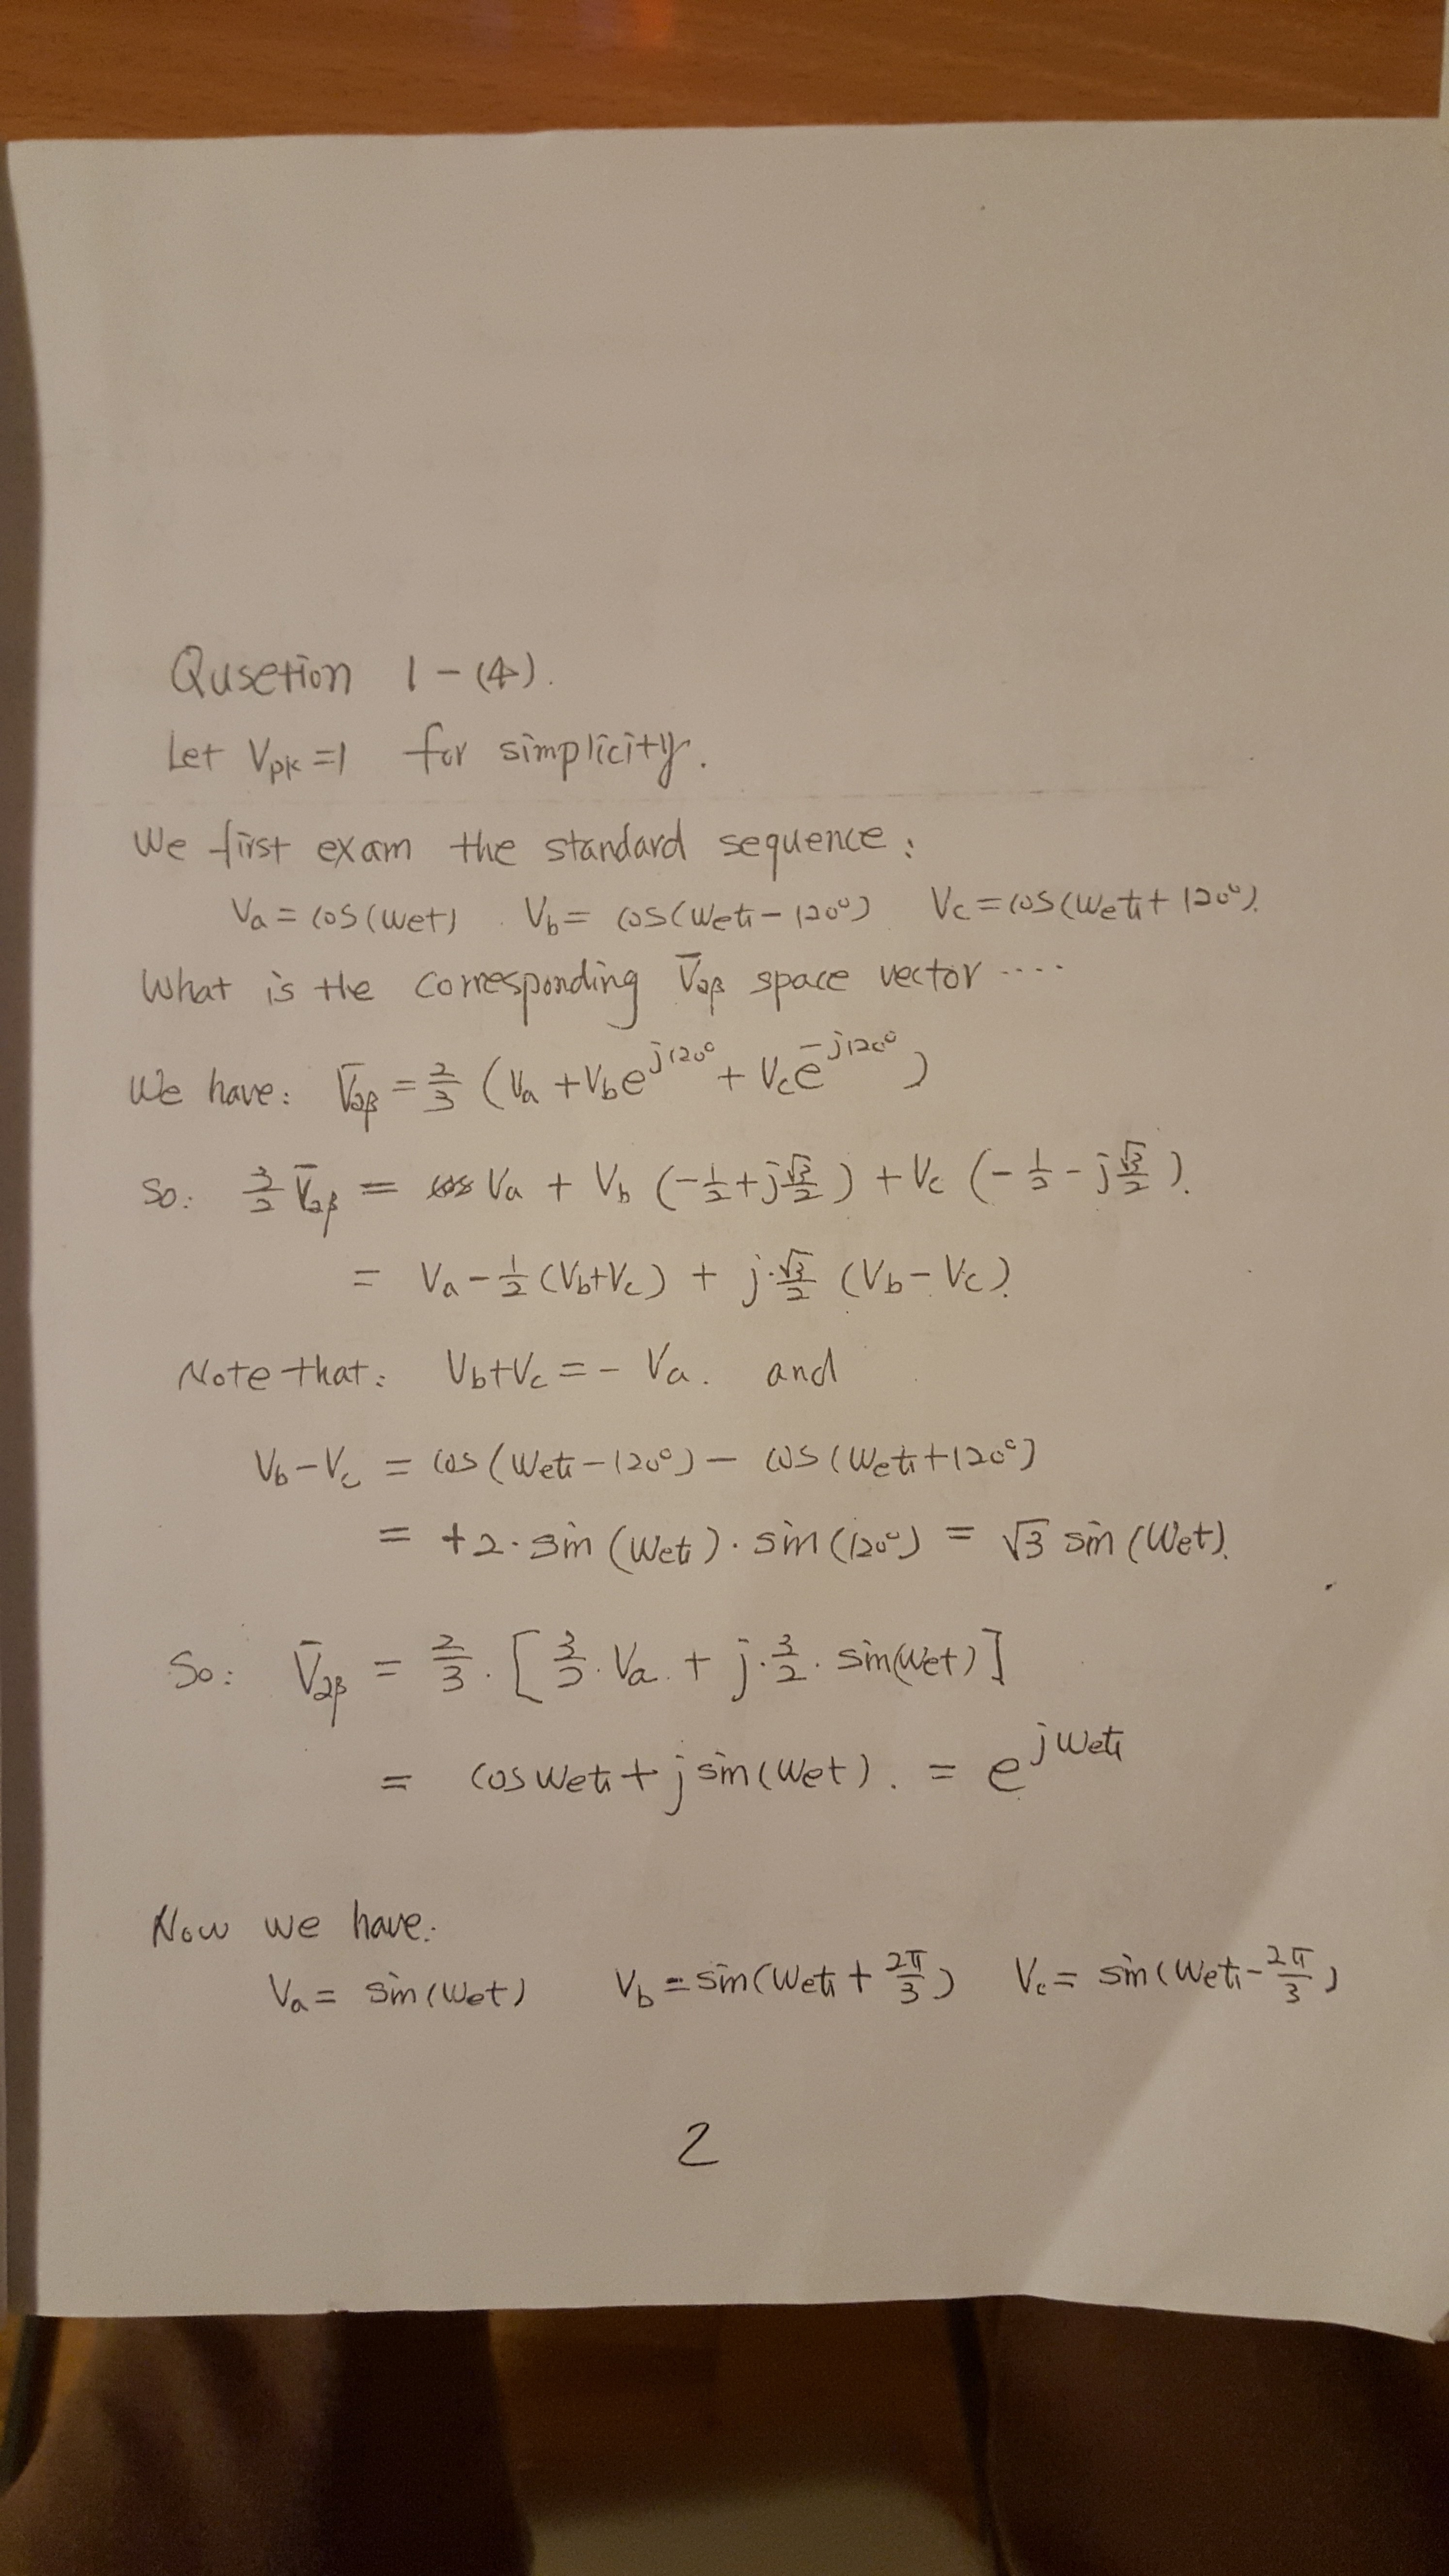 Qusetion 1-(4).
Let Vpk=1 for simplicity.
We first exam the standard sequence:
Va = cos(wet) Vb = cos(wet-120°) Vc=cos(wet+120°).
What is the corresponding V̄αβ space vector ....
We have: V̄αβ = 2/3 (Va + Vb e^j120° + Vc e^-j120°)
So: 3/2 V̄αβ = Va + Vb (-1/2 + j√3/2) + Vc (-1/2 - j√3/2).
= Va - 1/2 (Vb+Vc) + j·√3/2 (Vb - Vc).
Note that: Vb+Vc = - Va. and
Vb-Vc = cos(wet-120°) - cos(wet+120°)
= +2·sin(wet)·sin(120°) = √3 sin(wet).
So: V̄αβ = 2/3·[3/2·Va + j·3/2·sin(wet)]
= cos wet + j sin(wet). = e^jwet
Now we have:
Va = sin(wet) Vb = sin(wet + 2π/3) Vc = sin(wet - 2π/3)
2